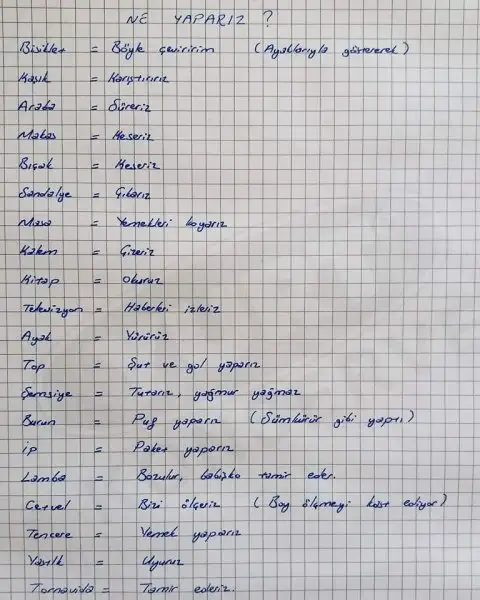 NE YAPARIZ ?
Bisiklet = Böyle çeviririm (Ayaklarıyla göstererek)
Kaşık = Karıştırırız
Araba = Süreriz
Makas = Keseriz
Bıçak = Keseriz
Sandalye = Çıkarız
Masa = Yemekleri koyarız
Kalem = Çizeriz
Kitap = Okuruz
Televizyon = Haberleri izleriz
Ayak = Yürürüz
Top = Şut ve gol yaparız
Şemsiye = Tutarız, yağmur yağmaz
Burun = Puf yaparız (Sümkürür gibi yaptı)
İp = Paket yaparız
Lamba = Bozulur, babişko tamir eder.
Cetvel = Bizi ölçeriz (Boy ölçmeyi kast ediyor)
Tencere = Yemek yaparız
Yastık = Uyuruz
Tornavida = Tamir ederiz.